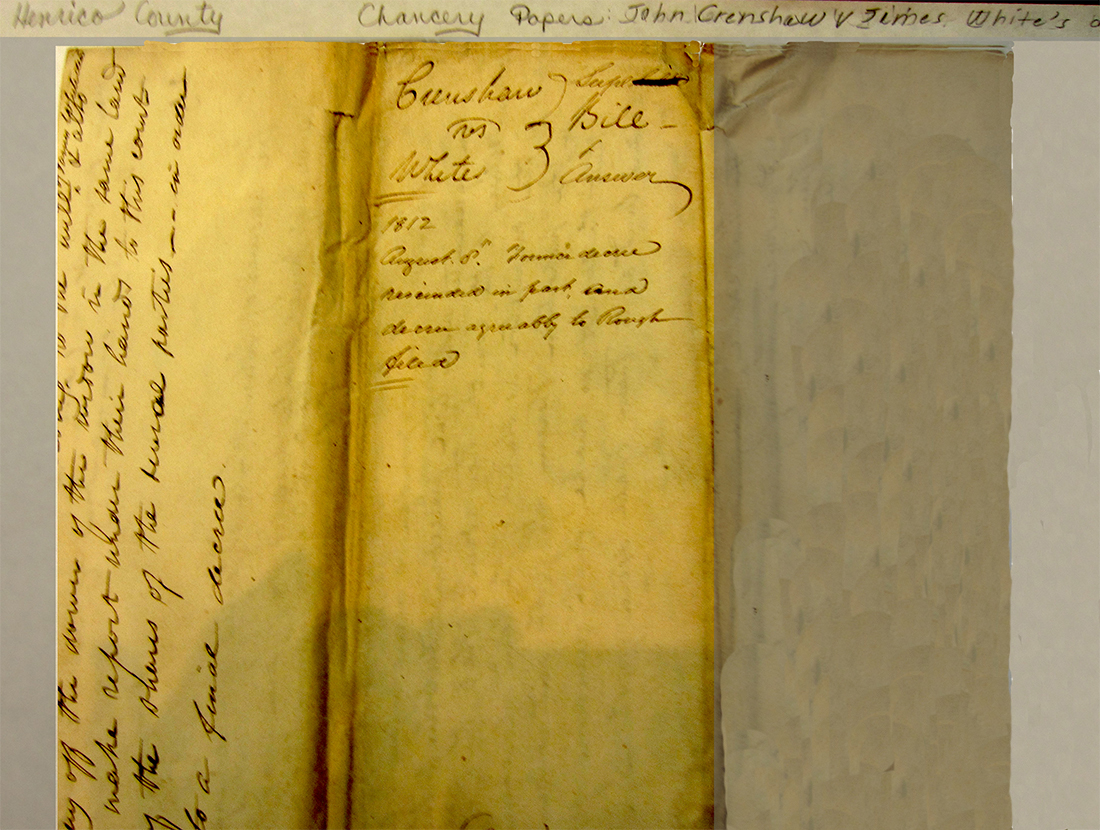 Henrico County Chancery Papers: John Crenshaw v James White's
Crenshaw
vs
Whites
Bill
&
Answer
1812
August 8th Former decree
rescinded in part, and
decree agreably to Rough
filed
the widow in the same land
off the dower of
make report under their hands to this court
the shares of the several parties — in order
to a final decree.